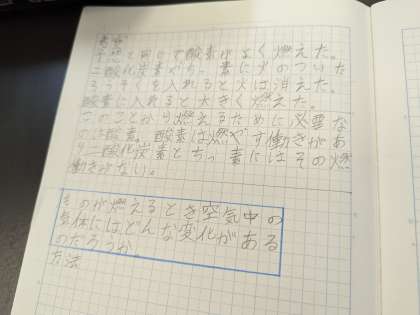 考察
予想と同じで酸素がよく燃えた。
二酸化炭素やちっ素に火のついた
ろうそくを入れると火は消えた。
酸素に入れると大きく燃えた。
このことから燃えるために必要な
のは酸素。酸素は燃やす働きがあ
り二酸化炭素とちっ素にはその燃
働きがない。
ものが燃えるとき空気中の
気体にはどんな変化がある
のだろうか。
方法